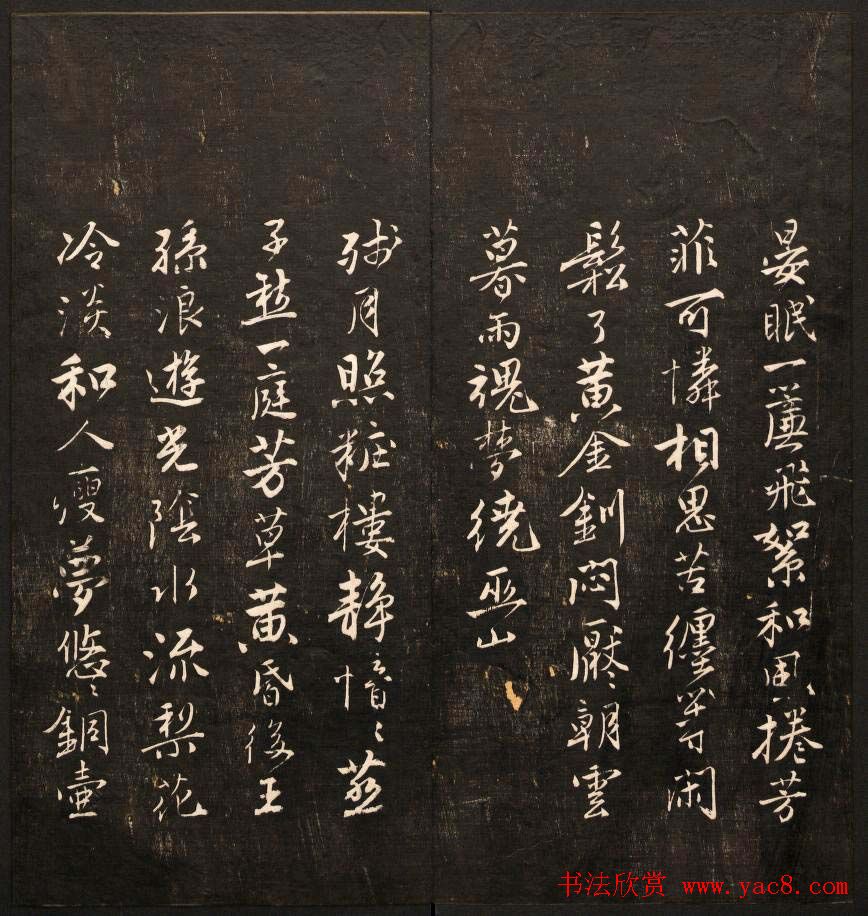 晏眠一簾飛絮和風捲芳
菲可憐相思苦纏等閑
鬆了黃金釧悶厭厭朝雲
暮雨魂夢繞巫山
殘月照粧樓靜愔〻燕
子愁一庭芳草黃昏後王
孫浪遊光陰水流梨花
冷淡和人瘦夢悠〻銅壺
书法欣赏 www.yac8.com